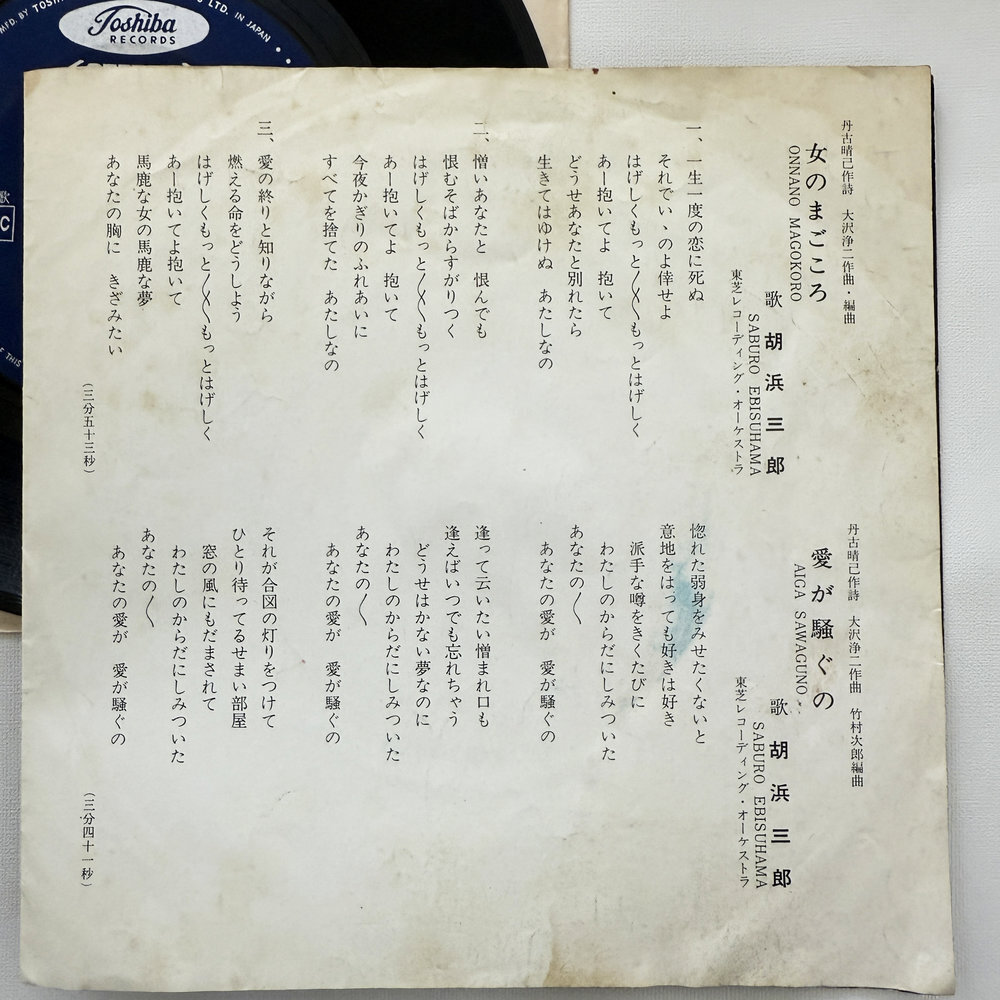 MFD. BY
LTD. IN JAPAN
Toshiba
RECORDS
丹古晴己作詩　大沢浄二作曲・編曲
女のまごころ
ONNANO MAGOKORO
歌　胡浜三郎
SABURO EBISUHAMA
東芝レコーディング・オーケストラ
一、一生一度の恋に死ぬ
それでいゝのよ倖せよ
はげしくもっと〳〵〳〵もっとはげしく
あー抱いてよ　抱いて
どうせあなたと別れたら
生きてはゆけぬ　あたしなの
二、憎いあなたと　恨んでも
恨むそばからすがりつく
はげしくもっと〳〵〳〵もっとはげしく
あー抱いてよ　抱いて
今夜かぎりのふれあいに
すべてを捨てた　あたしなの
三、愛の終りと知りながら
燃える命をどうしよう
はげしくもっと〳〵〳〵もっとはげしく
あー抱いてよ抱いて
馬鹿な女の馬鹿な夢
あなたの胸に　きざみたい
（三分五十三秒）
丹古晴己作詩　大沢浄二作曲　竹村次郎編曲
愛が騒ぐの
AIGA SAWAGUNO
歌　胡浜三郎
SABURO EBISUHAMA
東芝レコーディング・オーケストラ
惚れた弱身をみせたくないと
意地をはっても好きは好き
派手な噂をきくたびに
わたしのからだにしみついた
あなたの〳〵
あなたの愛が　愛が騒ぐの
逢って云いたい憎まれ口も
逢えばいつでも忘れちゃう
どうせはかない夢なのに
わたしのからだにしみついた
あなたの〳〵
あなたの愛が　愛が騒ぐの
それが合図の灯りをつけて
ひとり待ってるせまい部屋
窓の風にもだまされて
わたしのからだにしみついた
あなたの〳〵
あなたの愛が　愛が騒ぐの
（三分四十一秒）